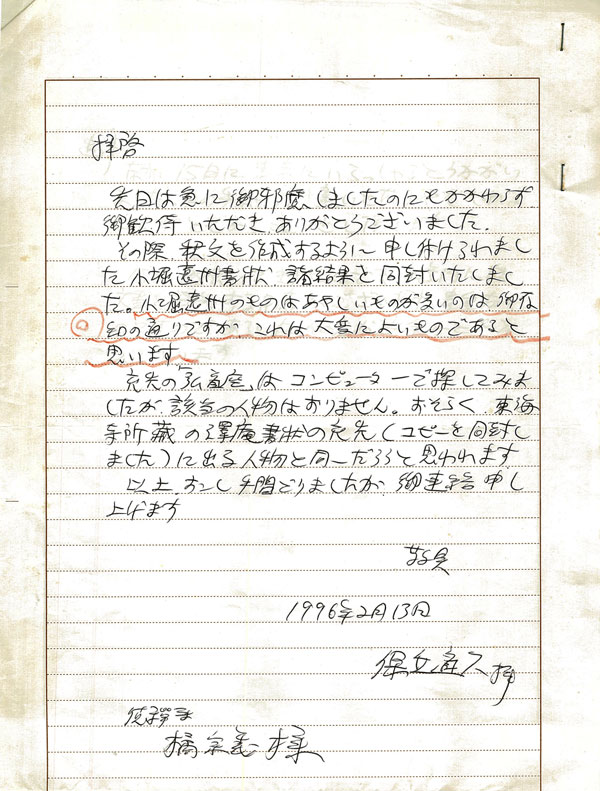 拝啓
先日は急に御邪魔しましたのにもかかわらず
御歓待いただき ありがとうございました.
その際 釈文を作成するように申し付けられまし
た小堀遠州書状 諸結果を同封いたしまし
た。小堀遠州のものはあやしいものが多いのは御存
知の通りですが、これは大変によいものであると
思います
充先の「弘斎室」は コンピューターで探してみま
したが 該当の人物はおりません。おそらく、東海
寺所蔵の澤庵書状の充先(コピーを同封し
ました)に出る人物と同一だろうと思われます
以上 少し手間どりましたが 御連絡申し
上げます
敬具
1996年2月13日
保立道久 拝
橘宗義 様